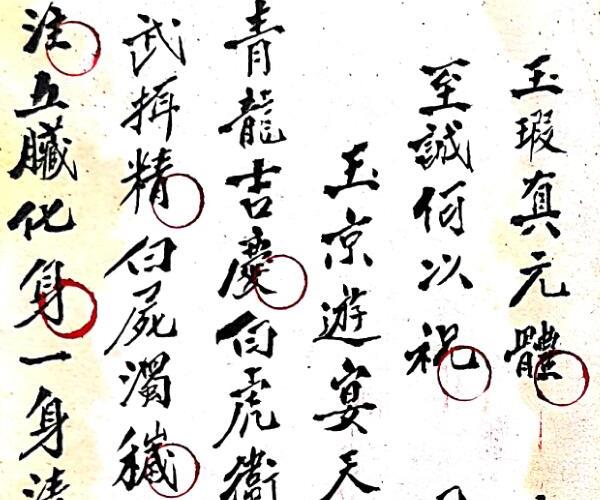 玉瑕真元體
至誠何以祝
玉京遊宴天
青龍吉慶白虎衛
武揖精白屍濁穢
注五臟化身一身